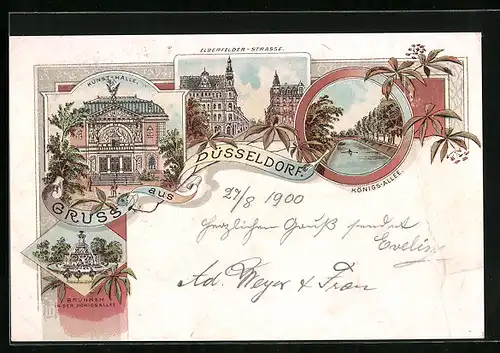 ELBERFELDER-STRASSE.
KUNST-HALLE.
GRUSS aus DÜSSELDORF.
KÖNIGS-ALLEE.
BRUNNEN
IN DER KÖNIGSALLEE
27/8 1900
Herzlichen Gruß sendet
Ad. Meyer & Frau